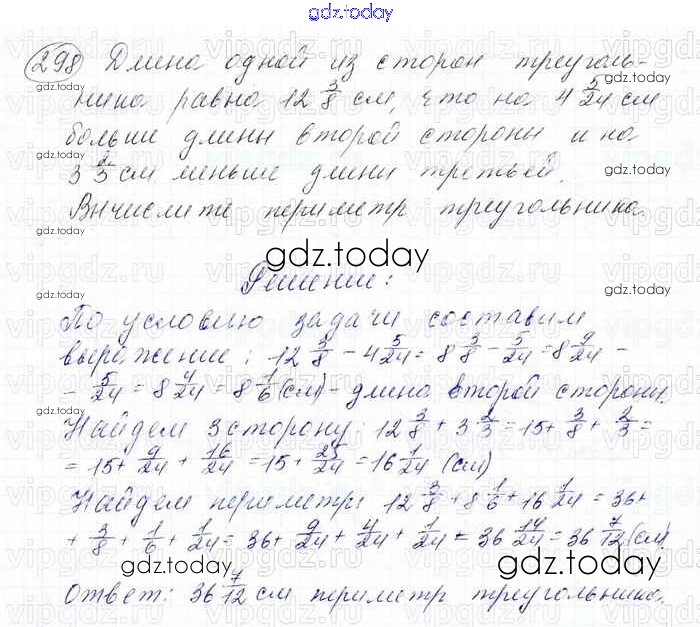 gdz.today
298 Длина одной из сторон треуголь-
ника равна 12 3/8 см, что на 4 5/24 см
больше длины второй стороны и на
3 2/3 см меньше длины третьей.
Вычислите периметр треугольника.
gdz.today
Решение:
По условию задачи составим
выражение: 12 3/8 - 4 5/24 = 8 3/8 - 5/24 = 8 9/24 -
- 5/24 = 8 4/24 = 8 1/6 (см) - длина второй стороны.
Найдем 3 сторону: 12 3/8 + 3 2/3 = 15 + 3/8 + 2/3 =
= 15 + 9/24 + 16/24 = 15 + 25/24 = 16 1/24 (см)
Найдем периметр: 12 3/8 + 8 1/6 + 16 1/24 = 36 +
+ 3/8 + 1/6 + 1/24 = 36 + 9/24 + 4/24 + 1/24 = 36 14/24 = 36 7/12 (см)
gdz.today
Ответ: 36 7/12 см периметр треугольника.